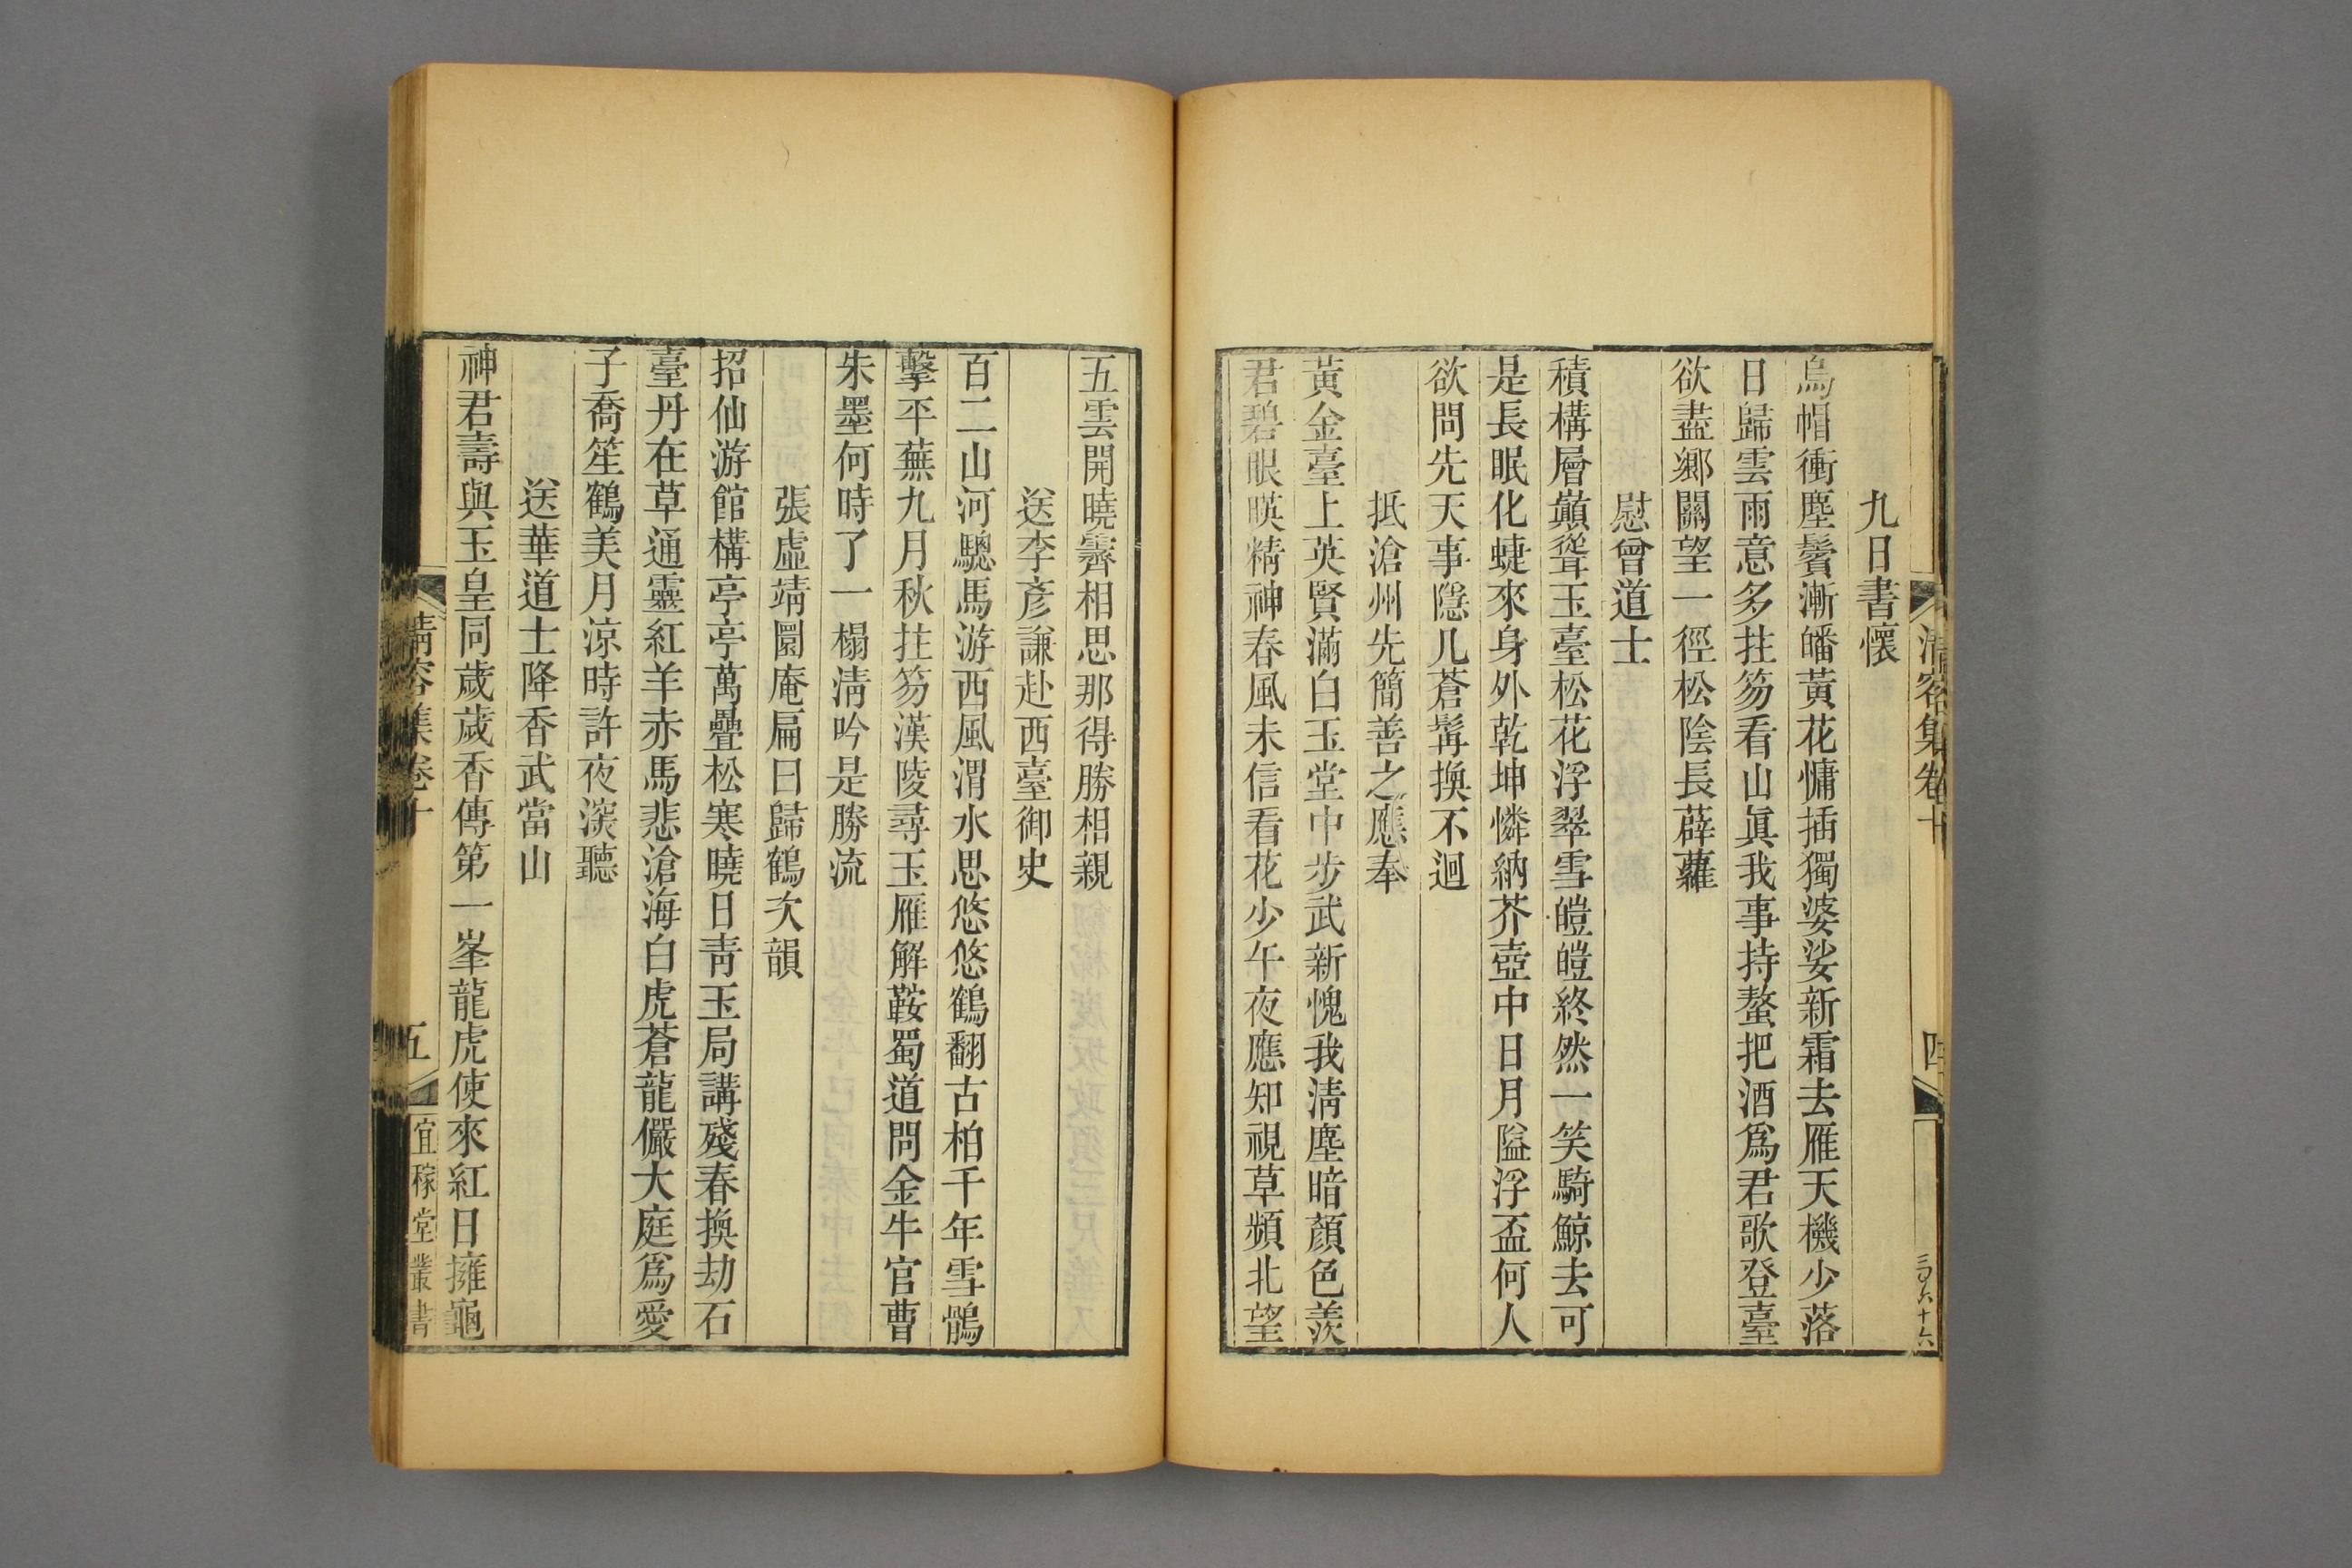 清容集卷十
四
九日書懷
烏帽衝塵鬢漸皤黃花慵插獨婆娑新霜去雁天機少落
日歸雲雨意多拄笏看山眞我事持螯把酒爲君歌登臺
欲盡鄉關望一徑松陰長薜蘿
慰曾道士
積構層巔聳玉臺松花浮翠雪皚皚終然一笑騎鯨去可
是長眠化蜨來身外乾坤憐納芥壺中日月隘浮盃何人
欲問先天事隱几蒼髯換不迴
抵滄州先簡善之應奉
黃金臺上英賢滿白玉堂中步武新愧我淸塵暗顏色羨
君碧眼暎精神春風未信看花少午夜應知視草頻北望
五雲開曉霽相思那得勝相親
送李彥謙赴西臺御史
百二山河驄馬游西風渭水思悠悠鶴翻古柏千年雪鶻
擊平蕪九月秋拄笏漢陵尋玉雁解鞍蜀道問金牛官曹
朱墨何時了一榻淸吟是勝流
張虛靖圜庵扁曰歸鶴次韻
招仙游館構亭亭萬疊松寒曉日靑玉局講殘春換劫石
臺丹在草通靈紅羊赤馬悲滄海白虎蒼龍儼大庭爲愛
子喬笙鶴美月涼時許夜深聽
送華道士降香武當山
神君壽與玉皇同歲歲香傳第一峯龍虎使來紅日擁龜
清容集卷十
五
宜稼堂叢書